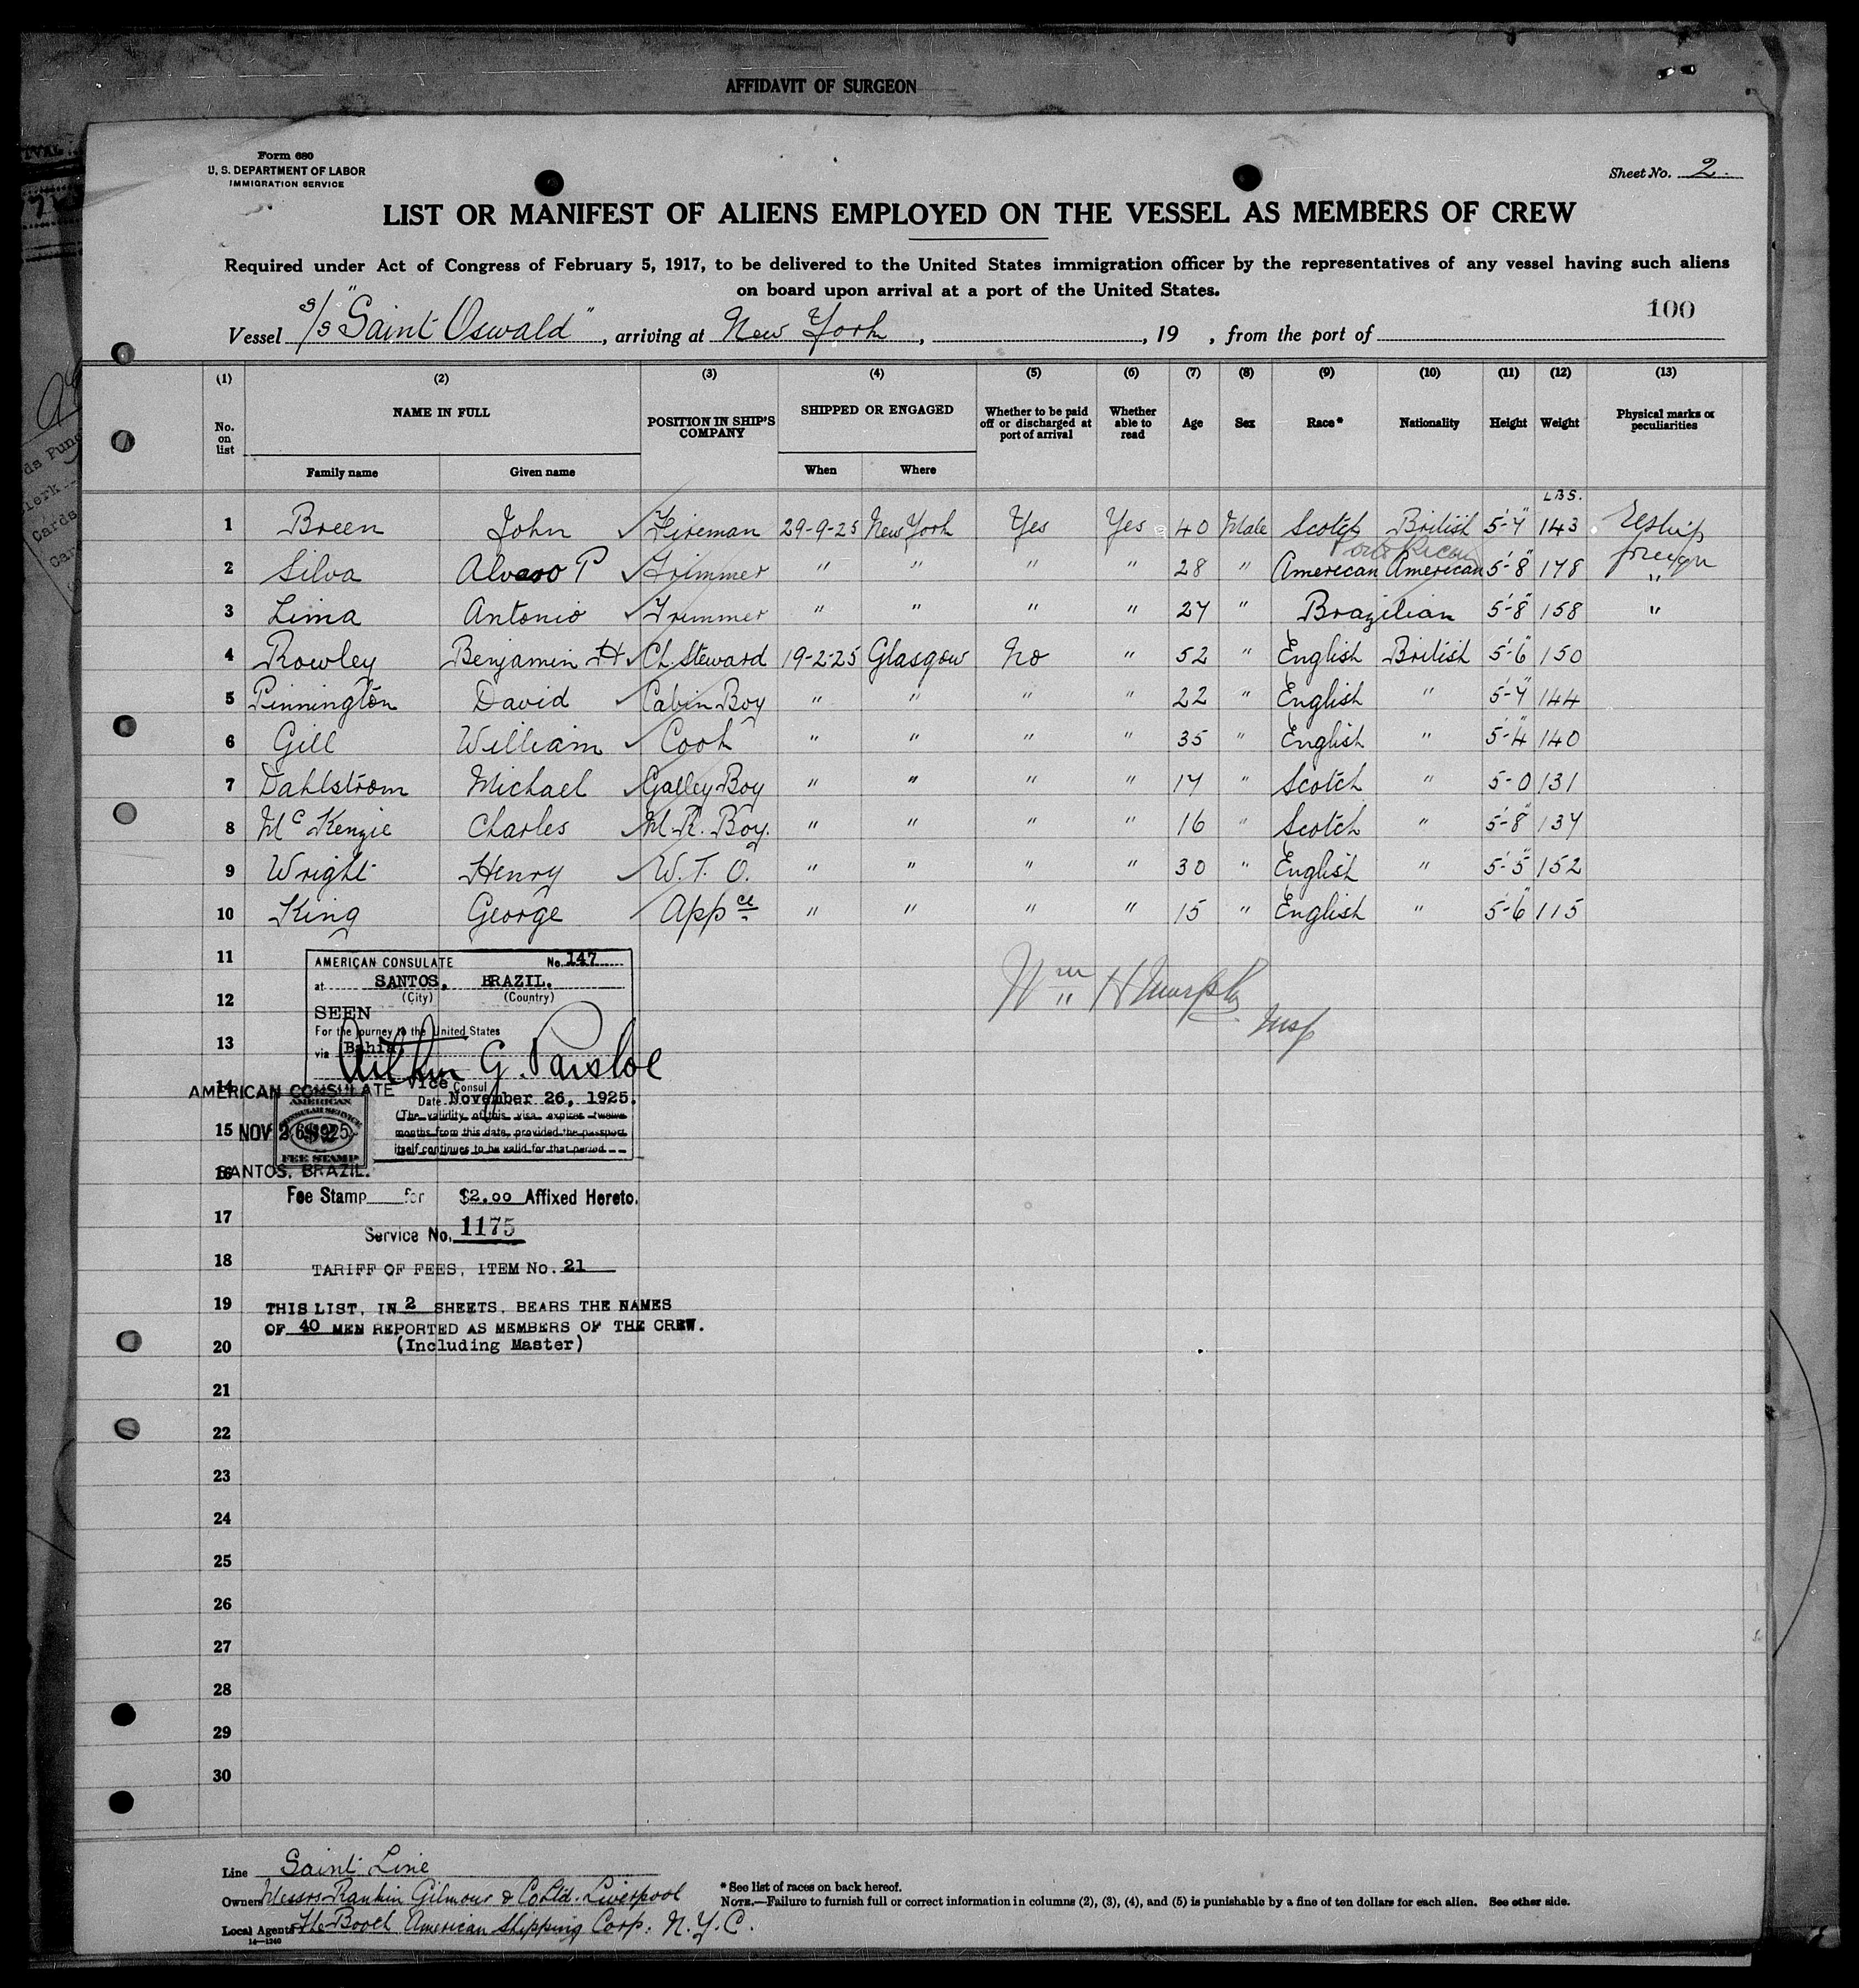 AFFIDAVIT OF SURGEON
Form 680
U. S. DEPARTMENT OF LABOR
IMMIGRATION SERVICE
Sheet No. 2.
LIST OR MANIFEST OF ALIENS EMPLOYED ON THE VESSEL AS MEMBERS OF CREW
Required under Act of Congress of February 5, 1917, to be delivered to the United States immigration officer by the representatives of any vessel having such aliens
on board upon arrival at a port of the United States.
100
Vessel S/S "Saint Oswald", arriving at New York, , 19 , from the port of
(1) (2) (3) (4) (5) (6) (7) (8) (9) (10) (11) (12) (13)
No. on list NAME IN FULL POSITION IN SHIP'S COMPANY SHIPPED OR ENGAGED Whether to be paid off or discharged at port of arrival Whether able to read Age Sex Race* Nationality Height Weight Physical marks or peculiarities
Family name Given name When Where
LBS.
1 Breen John Fireman 29-9-25 New York Yes Yes 40 Male Scotch British 5'-7" 143 Reship
Porto Rican foreign
2 Silva Alvaro P Trimmer " " " " 28 " American American 5'-8" 178 "
3 Lima Antonio Trimmer " " " " 27 " Brazilian 5'-8" 158 "
4 Rowley Benjamin H Ch. Steward 19-2-25 Glasgow No " 52 " English British 5'-6" 150
5 Pinnington David Cabin Boy " " " " 22 " English " 5'-7" 144
6 Gill William Cook " " " " 35 " English " 5'-4" 140
7 Dahlstrom Michael Galley Boy " " " " 17 " Scotch " 5-0 131
8 McKenzie Charles M.R. Boy. " " " " 16 " Scotch " 5'-8" 137
9 Wright Henry W. T. O. " " " " 30 " English " 5'-5" 152
10 King George Appce " " " " 15 " English " 5'-6" 115
11
12
13
14
15
16
17
18
19
20
21
22
23
24
25
26
27
28
29
30
AMERICAN CONSULATE No. 147
at SANTOS, BRAZIL.
(City) (Country)
SEEN
For the journey to the United States
via Bahia
Arthur G. Parsloe
Vice Consul
Date November 26, 1925.
(The validity of this visa expires twelve
months from this date, provided the passport
itself continues to be valid for that period
AMERICAN CONSULATE
NOV 26 1925
SANTOS, BRAZIL.
AMERICAN
CONSULAR SERVICE
$2
FEE STAMP
Fee Stamp for $2.00 Affixed Hereto.
Service No. 1175
TARIFF OF FEES, ITEM No. 21
THIS LIST, IN 2 SHEETS, BEARS THE NAMES
OF 40 MEN REPORTED AS MEMBERS OF THE CREW.
(Including Master)
Wm H Murphy
Insp
Line Saint Line
Owners Messrs Rankin Gilmour & Co Ltd. Liverpool
Local Agents The American Shipping Corp. N.Y.C.
14-1240
* See list of races on back hereof.
NOTE.—Failure to furnish full or correct information in columns (2), (3), (4), and (5) is punishable by a fine of ten dollars for each alien. See other side.